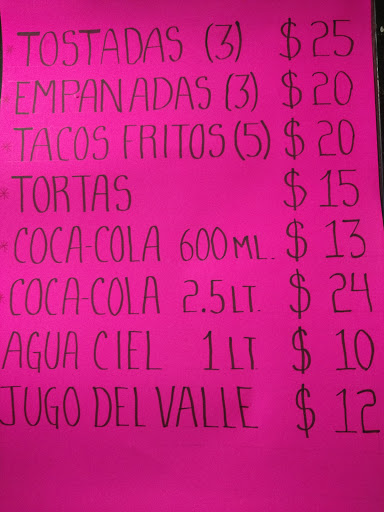 * TOSTADAS (3) $ 25
* EMPANADAS (3) $ 20
* TACOS FRITOS (5) $ 20
* TORTAS $ 15
* COCA-COLA 600 ML. $ 13
* COCA-COLA 2.5 LT. $ 24
AGUA CIEL 1 LT $ 10
JUGO DEL VALLE $ 12